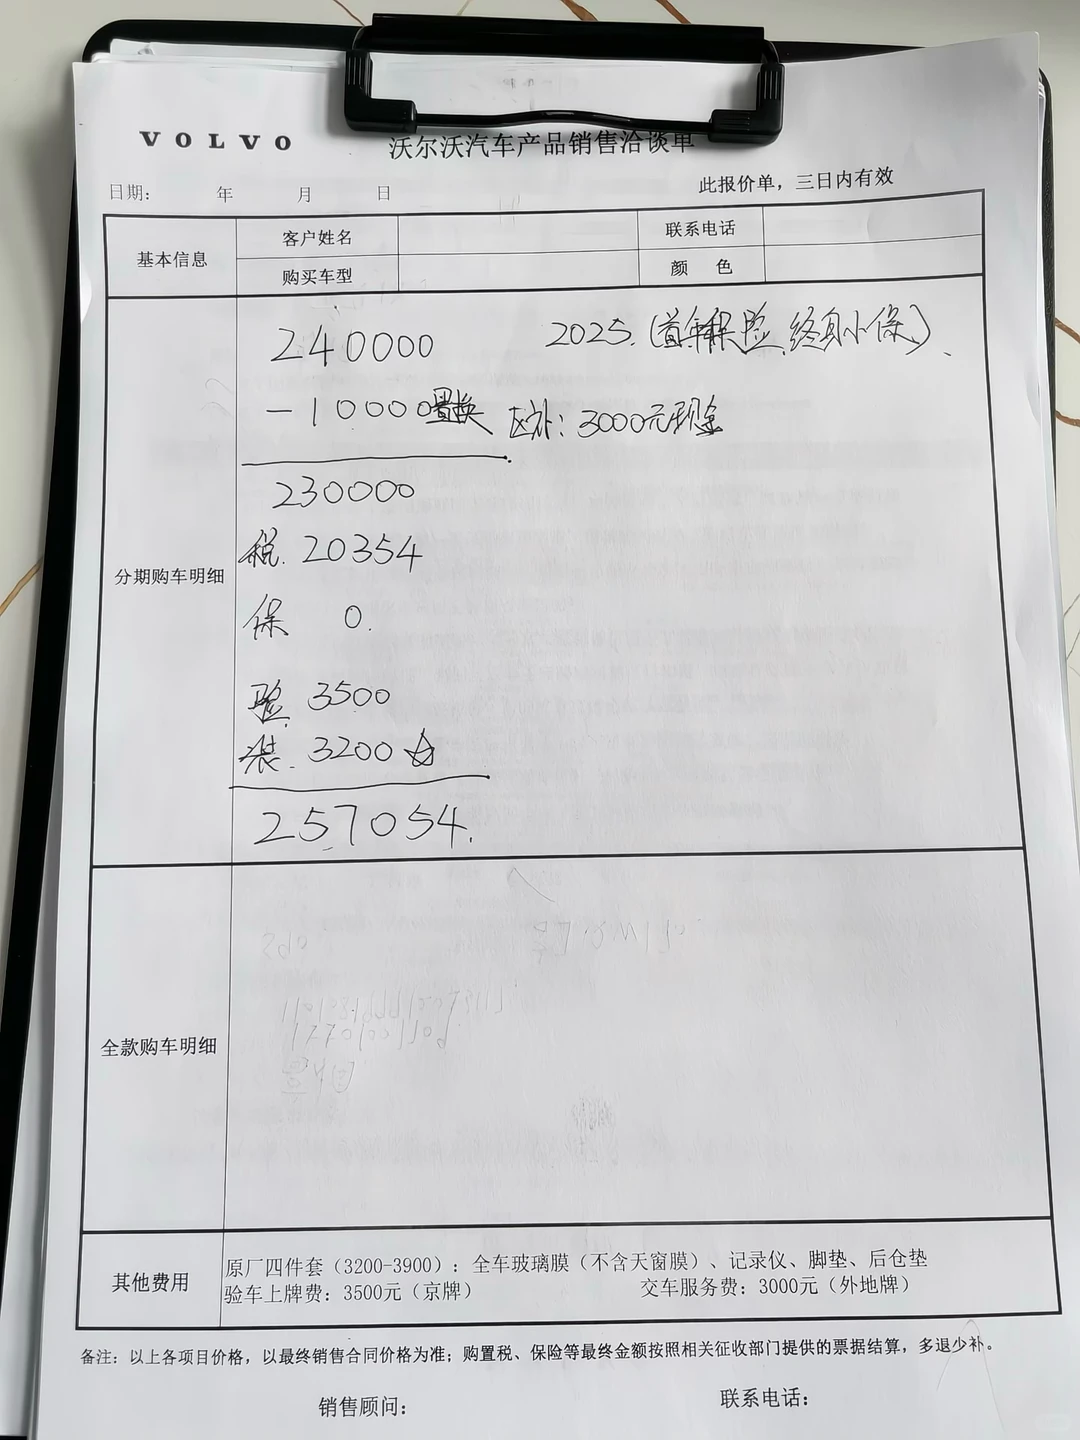 VOLVO 沃尔沃汽车产品销售洽谈单
日期： 年 月 日 此报价单，三日内有效
基本信息 客户姓名 联系电话
购买车型 颜 色
分期购车明细
240000 2025.(首年保险、终身小保)、
-10000置换 区补：3000元现金
230000
税. 20354
保 0.
验. 3500
装. 3200
257054.
全款购车明细
其他费用
原厂四件套（3200-3900）：全车玻璃膜（不含天窗膜）、记录仪、脚垫、后仓垫
验车上牌费：3500元（京牌） 交车服务费：3000元（外地牌）
备注：以上各项目价格，以最终销售合同价格为准；购置税、保险等最终金额按照相关征收部门提供的票据结算，多退少补。
销售顾问： 联系电话：